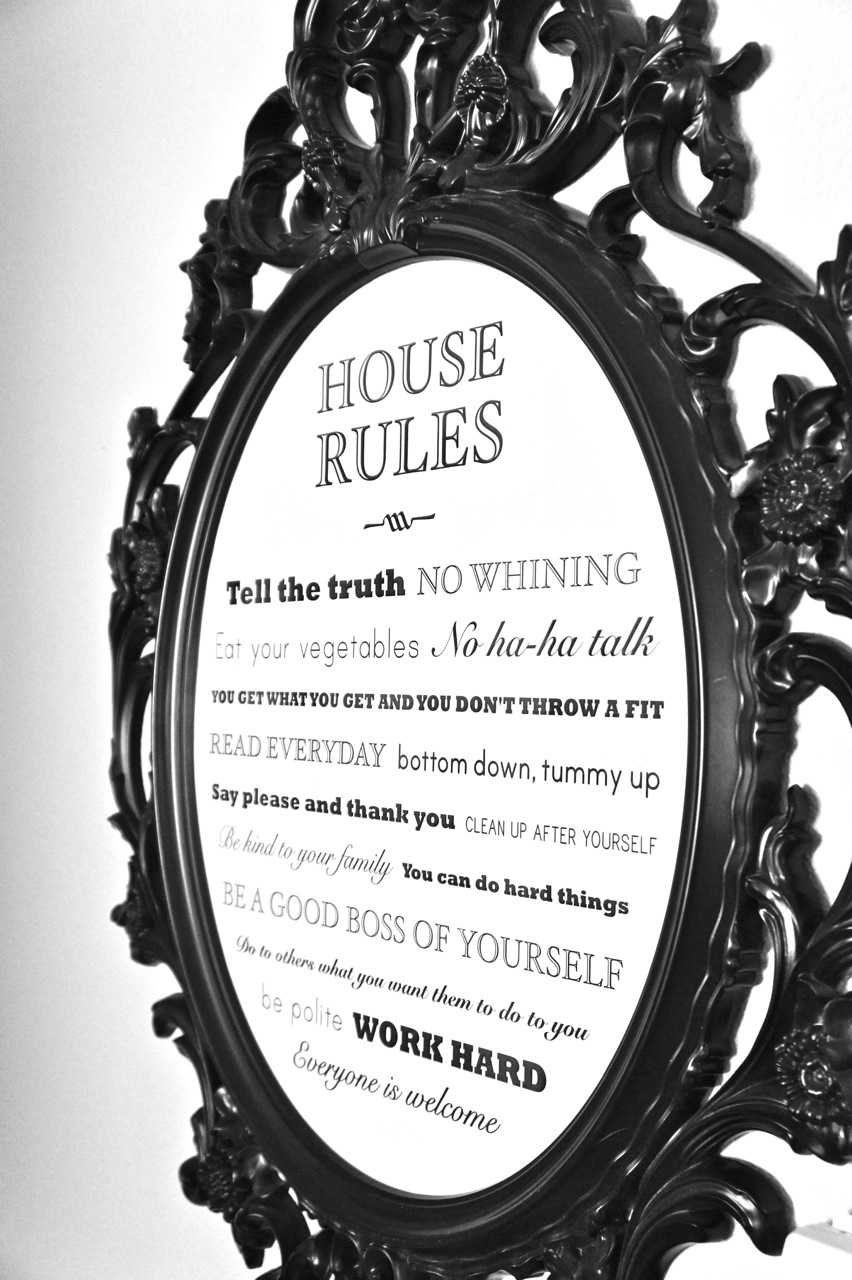 HOUSE
RULES
Tell the truth NO WHINING
Eat your vegetables No ha-ha talk
YOU GET WHAT YOU GET AND YOU DON'T THROW A FIT
READ EVERYDAY bottom down, tummy up
Say please and thank you CLEAN UP AFTER YOURSELF
Be kind to your family You can do hard things
BE A GOOD BOSS OF YOURSELF
Do to others what you want them to do to you
be polite WORK HARD
Everyone is welcome